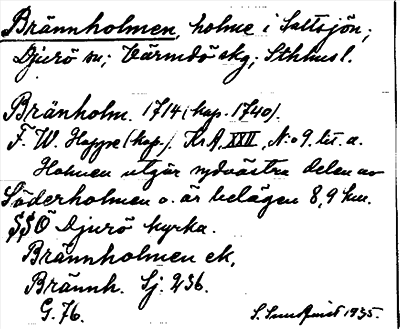 Brännholmen, holme i Saltsjön;
Djurö sn; Värmdö skg; Sthmsl.
Bränholm. 1714 (kop. 1740).
F. W. Hoppe (kop.). KrA, XXII, N:o 9. lit. a.
Holmen utgör sydvästra delen av
Söderholmen o. är belägen 8,9 km.
SSÖ Djurö kyrka.
Brännholmen ek,
Brännh. Sj. 236.
G. 76.
S. Sundqvist 1935.